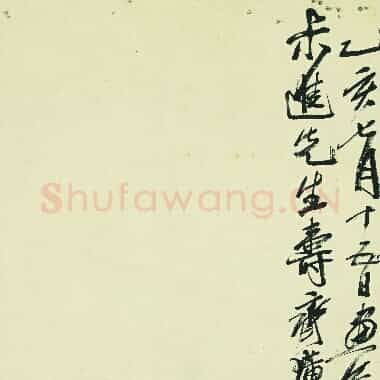 乙亥七月十五日畫
步進先生壽齊
Shufawang.CN